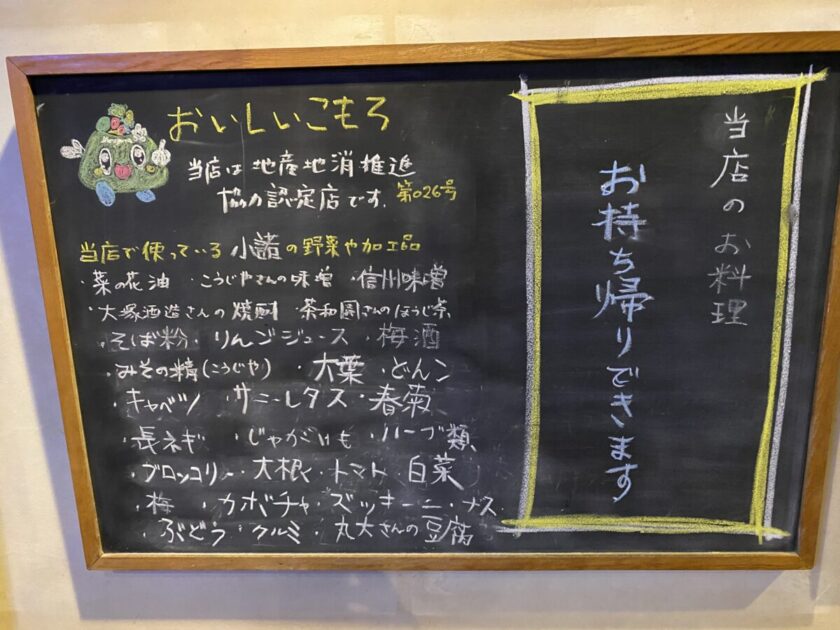 おいしいこもろ
当店は地産地消推進
協力認定店です。第026号
当店で使っている小諸の野菜や加工品
・菜の花油 ・こうじやさんの味噌 ・信州味噌
・大塚酒造さんの焼酎 ・茶和園さんのほうじ茶
・そば粉・りんごジュース ・梅酒
・みその精(こうじや) ・大葉・どんこ
・キャベツ ・サニーレタス・春菊
・長ネギ ・じゃがいも・ハーブ類
・ブロッコリー・大根・トマト・白菜
・梅 ・カボチャ・ズッキーニ・ナス
・ぶどう・クルミ・丸大さんの豆腐
当店のお料理
お持ち帰りできます